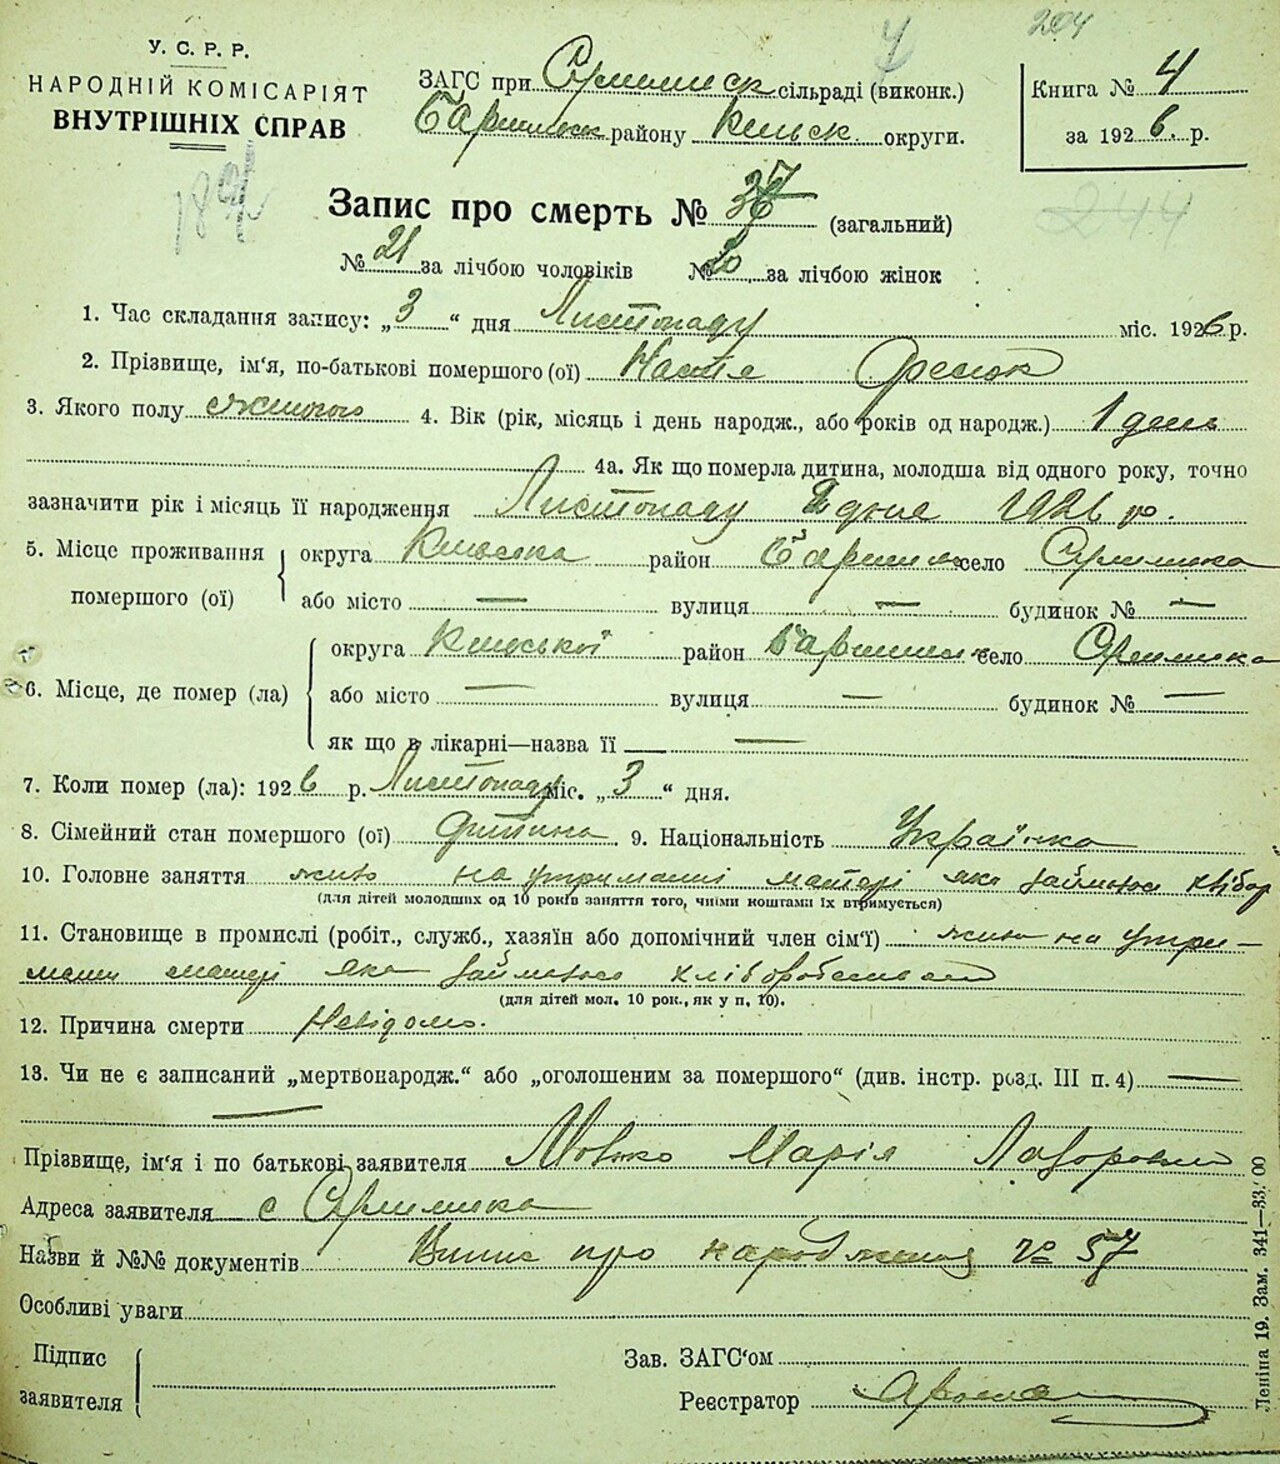 204
У. С. Р. Р.
НАРОДНІЙ КОМІСАРІЯТ
ВНУТРІШНІХ СПРАВ
ЗАГС при сільраді (виконк.)
району Київськ округи.
Книга № 4
за 1926 р.
Запис про смерть № (загальний)
№ 21 за лічбою чоловіків № за лічбою жінок
244
1. Час складання запису: „3“ дня Листопаду міс. 1926 р.
2. Прізвище, ім'я, по-батькові помершого (ої) Настя
3. Якого полу жіночого 4. Вік (рік, місяць і день народж., або років од народж.) 1 день
4а. Як що померла дитина, молодша від одного року, точно
зазначити рік і місяць її народження Листопаду 2 дня 1926 р.
5. Місце проживання помершого (ої) округа Київська район село
або місто — вулиця — будинок № —
6. Місце, де помер (ла) округа Київської район село
або місто — вулиця — будинок № —
як що в лікарні—назва її —
7. Коли помер (ла): 1926 р. Листопаду міс. „3“ дня.
8. Сімейний стан помершого (ої) дитина 9. Національність Українка
10. Головне заняття на утриманні матері яка займаєся хлібор
(для дітей молодших од 10 років заняття того, чиїми коштами їх втримується)
11. Становище в промислі (робіт., служб., хазяїн або допомічний член сім'ї) на утри—
мани матері яка займаєся хлібо
(для дітей мол. 10 рок., як у п. 10).
12. Причина смерти Невідомо.
13. Чи не є записаний „мертвонародж.“ або „оголошеним за помершого“ (див. інстр. розд. III п. 4) —
—
Прізвище, ім'я і по батькові заявителя Марія
Адреса заявителя с
Назви й №№ документів Випис про народження № 57
Особливі уваги
Підпис заявителя
Зав. ЗАГС'ом
Реєстратор
Леніна 19. Зам. 341—33.